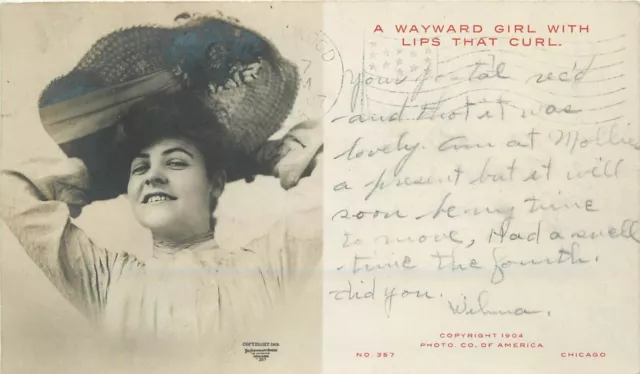 A WAYWARD GIRL WITH
LIPS THAT CURL.
Your postal rec'd
and thot it was
lovely. Am at Mollies
a present but it will
soon be my time
to move, Had a swell
time the fourth.
did you.
Wilma.
COPYRIGHT 1904
PHOTO. CO. OF AMERICA
NO. 357
CHICAGO
COPYRIGHT 1904